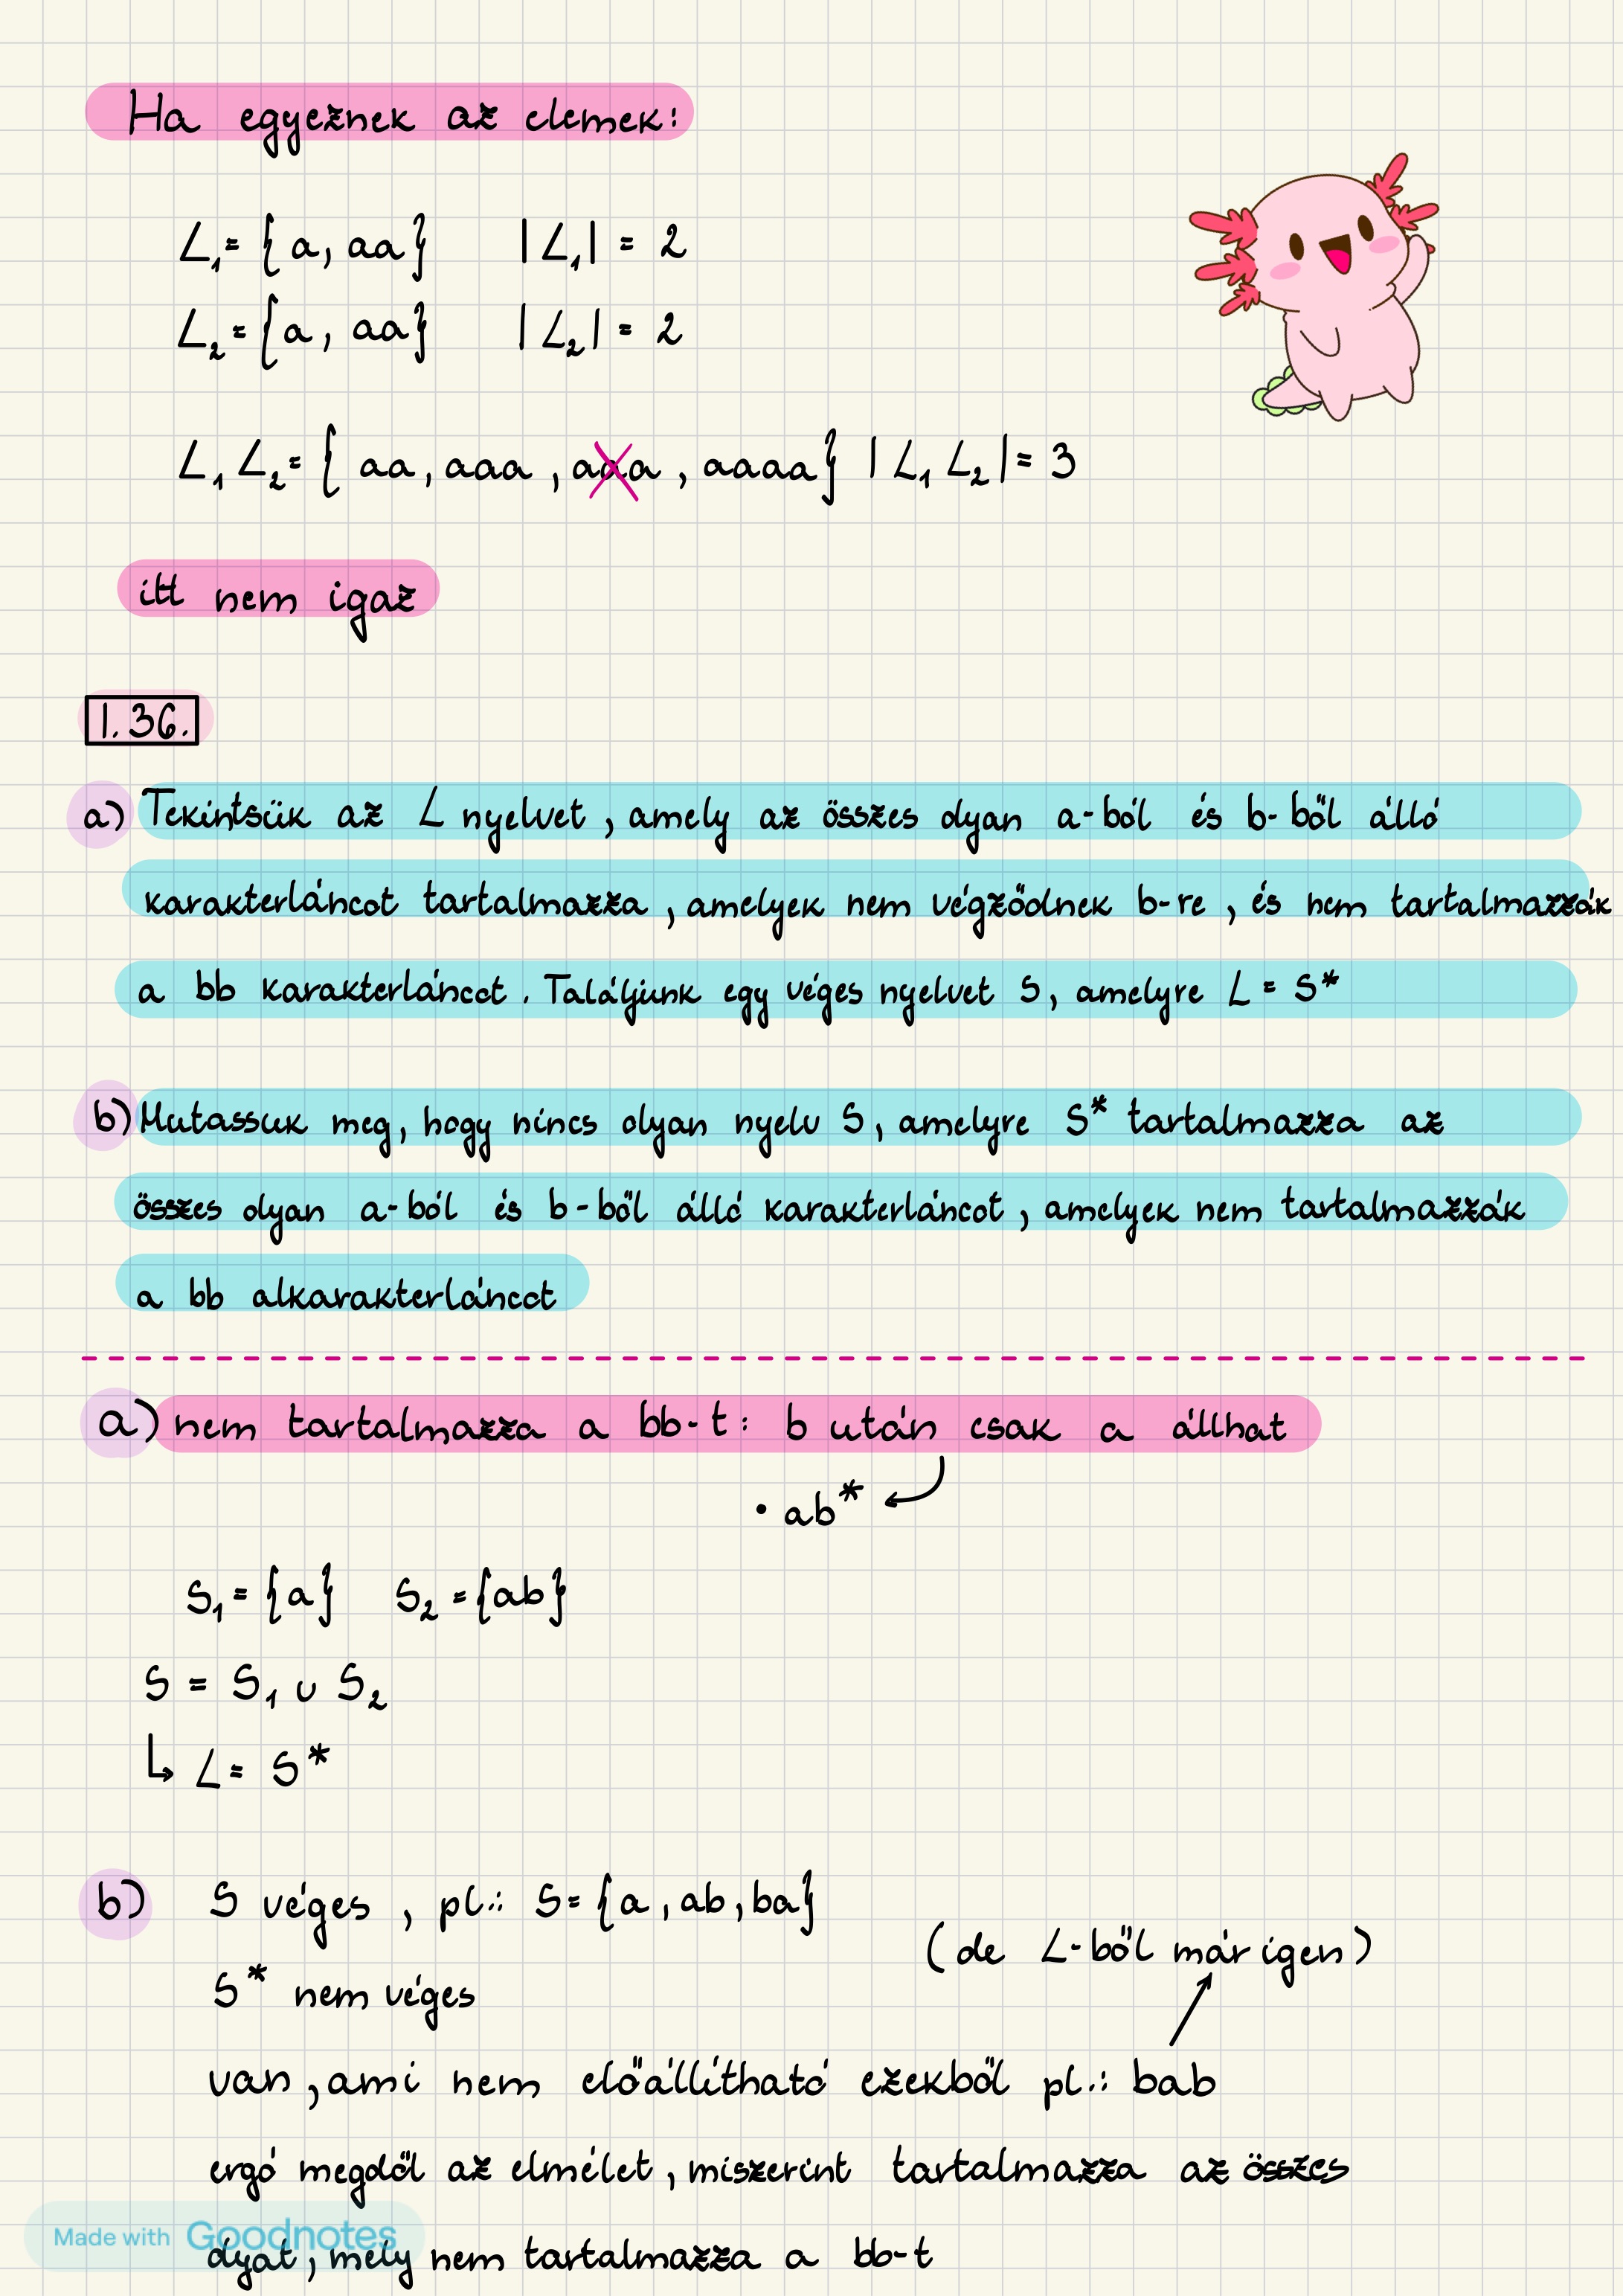 Ha egyeznek az elemek:
L₁= { a, aa} |L₁| = 2
L₂= {a, aa} |L₂| = 2
L₁ L₂= { aa, aaa, aaa, aaaa} |L₁ L₂|= 3
itt nem igaz
1.36.
a) Tekintsük az L nyelvet, amely az összes olyan a-ból és b-ből álló
karakterláncot tartalmazza, amelyek nem végződnek b-re, és nem tartalmazzák
a bb karakterláncot. Találjunk egy véges nyelvet S, amelyre L = S*
b) Mutassuk meg, hogy nincs olyan nyelv S, amelyre S* tartalmazza az
összes olyan a-ból és b-ből álló karakterláncot, amelyek nem tartalmazzák
a bb alkarakterláncot
a) nem tartalmazza a bb-t: b után csak a állhat
• ab*
S₁ = {a} S₂ = {ab}
S = S₁ ∪ S₂
↳ L = S*
b) S véges, pl.: S= {a, ab, ba}
(de L-ből már igen)
S* nem véges
van, ami nem előállítható ezekből pl.: bab
ergó megdől az elmélet, miszerint tartalmazza az összes
olyat, mely nem tartalmazza a bb-t
Made with Goodnotes